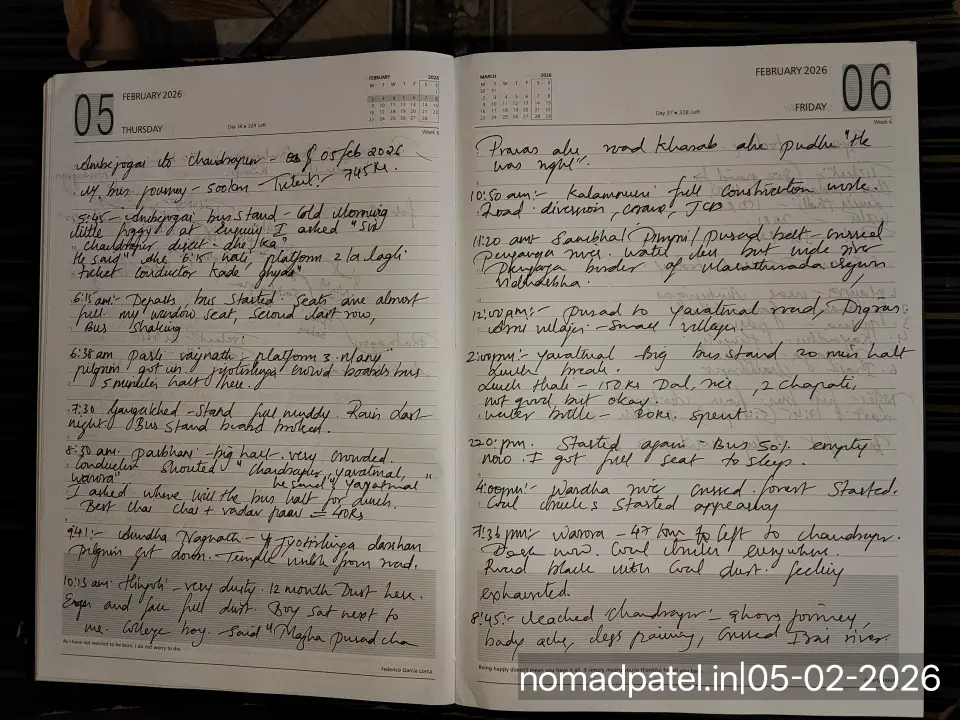 05
FEBRUARY 2026
THURSDAY
FEBRUARY 2026
Day 36 • 329 Left
Week 6
Ambejogai to Chandrapur - 05 feb 2026
My bus journey - 500km Ticket:- 745Rs.
5:45 - Ambejogai bus stand - Cold Morning
little foggy at enquiry I asked "Sir
chandrapur direct ahe ka"
He said "ahe 6:15 nahi, platform 2 la lagli
ticket conductor kade ghya"
6:15 am:- Departs, bus started seats are almost
full. my window seat, second last row,
Bus shaking
6:38 am Parli vaijnath - platform 3. Many
pilgrim got in. jyotirlinga crowd boards bus
5 minutes halt here.
7:30 Gangakhed - Stand full muddy. Rain last
night. Bus stand board broken.
8:30 am. Parbhani - big halt. very crowded.
Conductor shouted "Chandrapur, yavatmal,
warora" he said "yavatmal"
I asked where will the bus halt for lunch.
Best chai chai + vada paav = 40Rs
9:41:- Aundha Nagnath - Jyotirlinga darshan
pilgrim got down. Temple visible from road.
10:13 am Hingoli - very dusty. 12 month Dust here.
and face full dust. Boy sat next to
me. College boy. Said "Mazha pusad cha
As I have not worried to be born, I do not worry to die.
- Federico Garcia Lorca
MARCH 2026
FEBRUARY 2026
06
FRIDAY
Day 37 • 328 Left
Week 6
Pravas ahe road kharab ahe pudhe "He
was right".
10:50 am:- Kalamnuri full construction work.
Road diversion, JCB
11:20 am Pusad belt - crossed
penganga river. water less but wide river
Penganga border of Marathwada
Vidharbha.
12:00 pm:- pusad to yavatmal road, Digras.
Arni villages - small villages.
2:00pm:- yavatmal - Big bus stand 20 min halt
lunch break.
Lunch thali - 150Rs Dal, rice, 2 chapati,
not good, but okay.
water bottle - 20Rs. spent
2:20 pm. Started again - Bus 50% empty
now. I got full seat to sleep.
4:00pm:- Wardha river crossed. forest started.
Coal trucks started appearing
7:36 pm:- Warora - 47 km left to chandrapur.
Dark now. Coal everywhere.
Road black with Coal dust. feeling
exhausted.
8:45:- Reached Chandrapur - journey,
body ache, legs paining, Crossed Irai river.
nomadpatel.in|05-02-2026